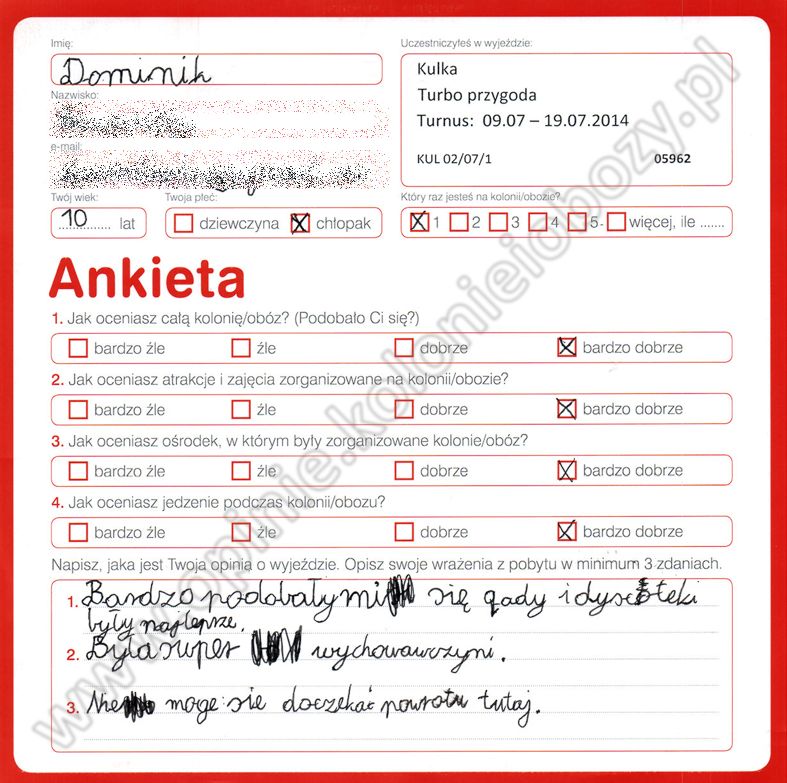 Imię:
Dominik
Nazwisko:
e-mail:
Twój wiek:
10 lat
Twoja płeć:
dziewczyna chłopak
Uczestniczyłeś w wyjeździe:
Kulka
Turbo przygoda
Turnus: 09.07 – 19.07.2014
KUL 02/07/1 05962
Który raz jesteś na kolonii/obozie?
1 2 3 4 5- więcej, ile .......
Ankieta
1. Jak oceniasz całą kolonię/obóz? (Podobało Ci się?)
bardzo źle źle dobrze bardzo dobrze
2. Jak oceniasz atrakcje i zajęcia zorganizowane na kolonii/obozie?
bardzo źle źle dobrze bardzo dobrze
3. Jak oceniasz ośrodek, w którym były zorganizowane kolonie/obóz?
bardzo źle źle dobrze bardzo dobrze
4. Jak oceniasz jedzenie podczas kolonii/obozu?
bardzo źle źle dobrze bardzo dobrze
Napisz, jaka jest Twoja opinia o wyjeździe. Opisz swoje wrażenia z pobytu w minimum 3 zdaniach.
1. Bardzo podobały mi się gady i dyskoteki
były najlepsze.
2. Była super wychowawczyni.
3. Nie moge sie doczekać powrotu tutaj.
www.opinie.kolonieiobozy.pl